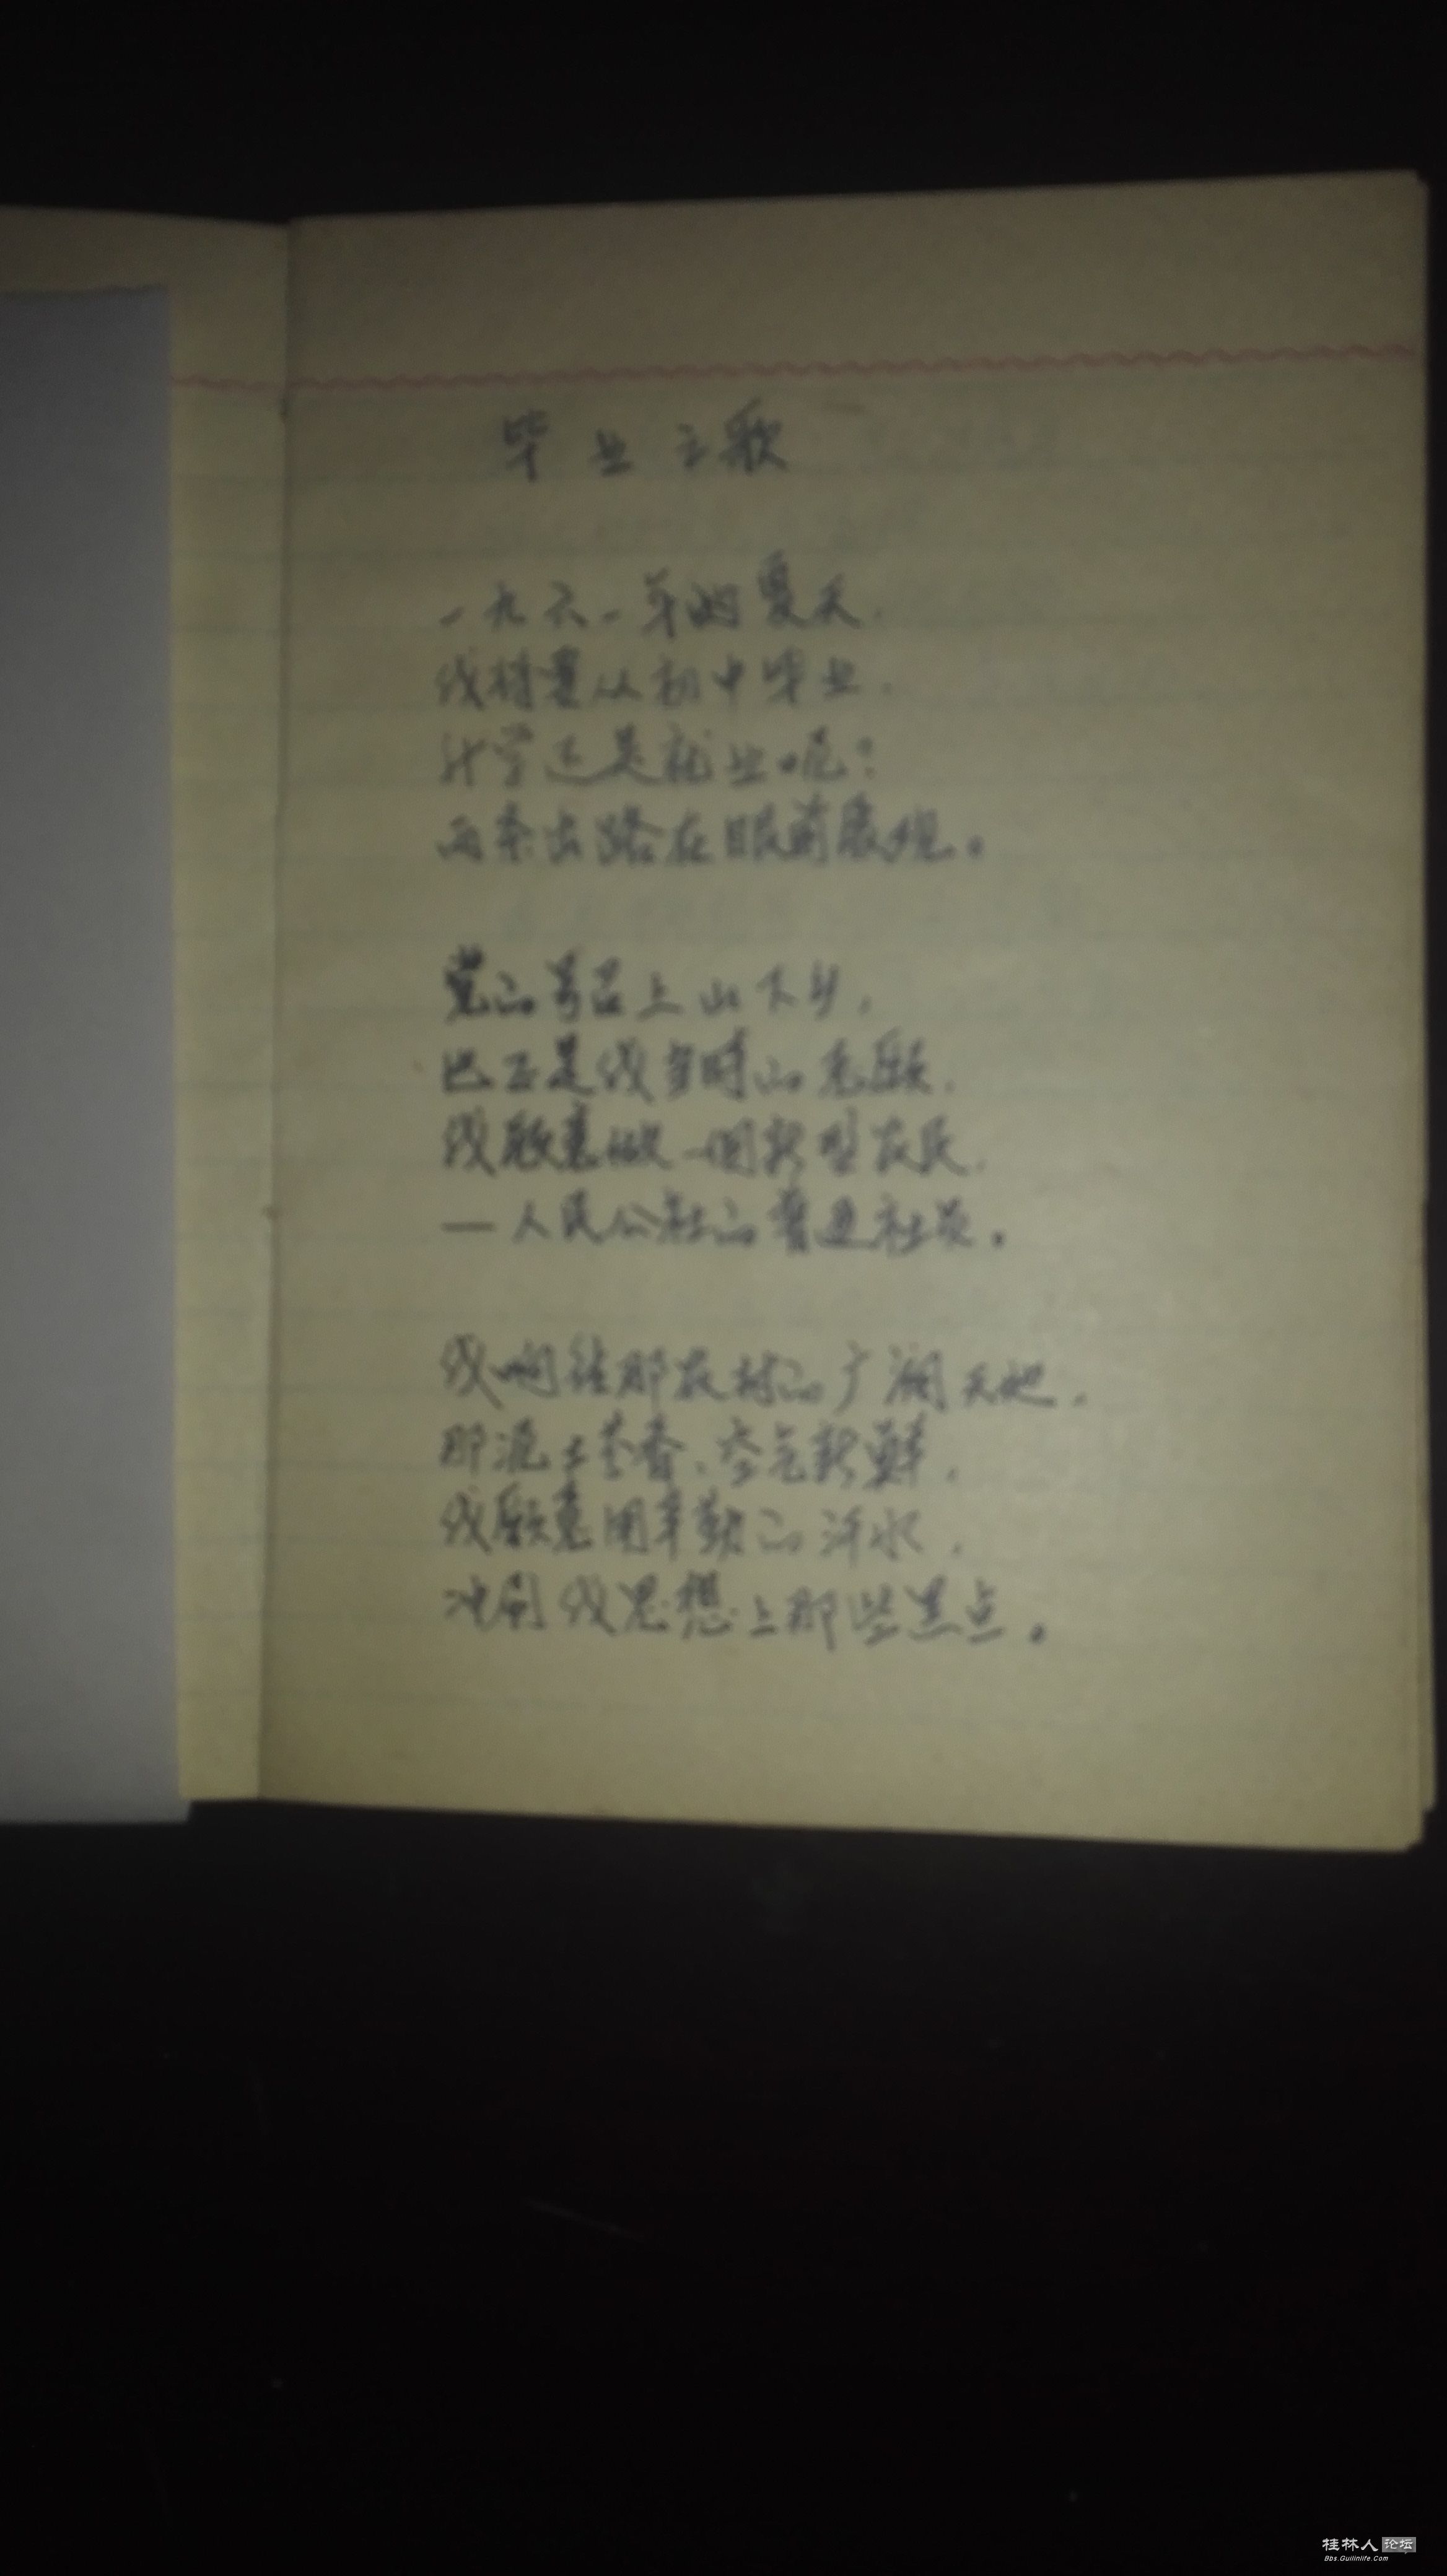 毕业之歌
一九六一年的夏天，
我将要从初中毕业，
升学还是就业呢？
两条出路在眼前展现。
党的号召上山下乡，
也正是我当时的志愿，
我愿意做一个新型农民，
—人民公社的普通社员。
我响往那农村的广阔天地，
那泥土芬香、空气新鲜，
我愿意用辛勤的汗水，
冲刷我思想上那些黑点。
桂林人论坛
Bbs.Guilinlife.Com